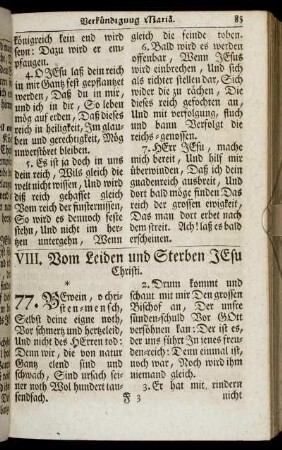 Verkündigung Mariä. 85
königreich kein end wird
seyn: Dazu wird er em-
pfangen.
4. O JEsu laß dein reich
in mir Gantz fest gepflantzet
werden, Daß du in mir,
und ich in dir, So leben
mög auf erden, Daß dieses
reich in heiligkeit, Im glau-
ben und gerechtigkeit, Mög
unverstöret bleiben.
5. Es ist ja doch in uns
dein reich, Wils gleich die
welt nicht wissen, Und wird
diß reich gehasset gleich
Vom reich der finsternissen,
So wird es dennoch feste
stehn, Und nicht im her-
tzen untergehn, Wenn
gleich die feinde toben.
6. Bald wird es werden
offenbar, Wenn JEsus
wird einbrechen, Und sich
als richter stellen dar, Sich
wider die zu rächen, Die
dieses reich gefochten an,
Und mit verfolgung, fluch
und bann Verfolgt die
reichsgenossen.
7. HErr JEsu, mache
mich bereit, Und hilf mir
überwinden, Daß ich dein
gnadenreich ausbreit, Und
dort mög dasselbe finden
Im freudenreich der ewig-
keit, Das man dort erbet nach
dem streit. Ach! laß es bald
erscheinen.
VIII. Vom Leiden und Sterben JEsu
Christi.
*
77. BEwein, o chri-
stenmensch,
Selbst deine eigne noth,
Vor schmertz und hertzleid,
Und nicht des HErren tod:
Denn wir, die von natur
Gantz elend sind und
schwach, Sind ursach sei-
ner noth Wol hundert tau-
sendfach.
2. Drum kommt und
schaut mit mir Den grossen
Bischof an, Der unsre
sünden-schuld Vor GOtt
versöhnen kan: Der ist es,
der uns führt In jenes freu-
den-reich: Denn einmal ist,
noch war, Noch wird ihm
niemand gleich.
3. Er hat mit rindern
F 3 nicht